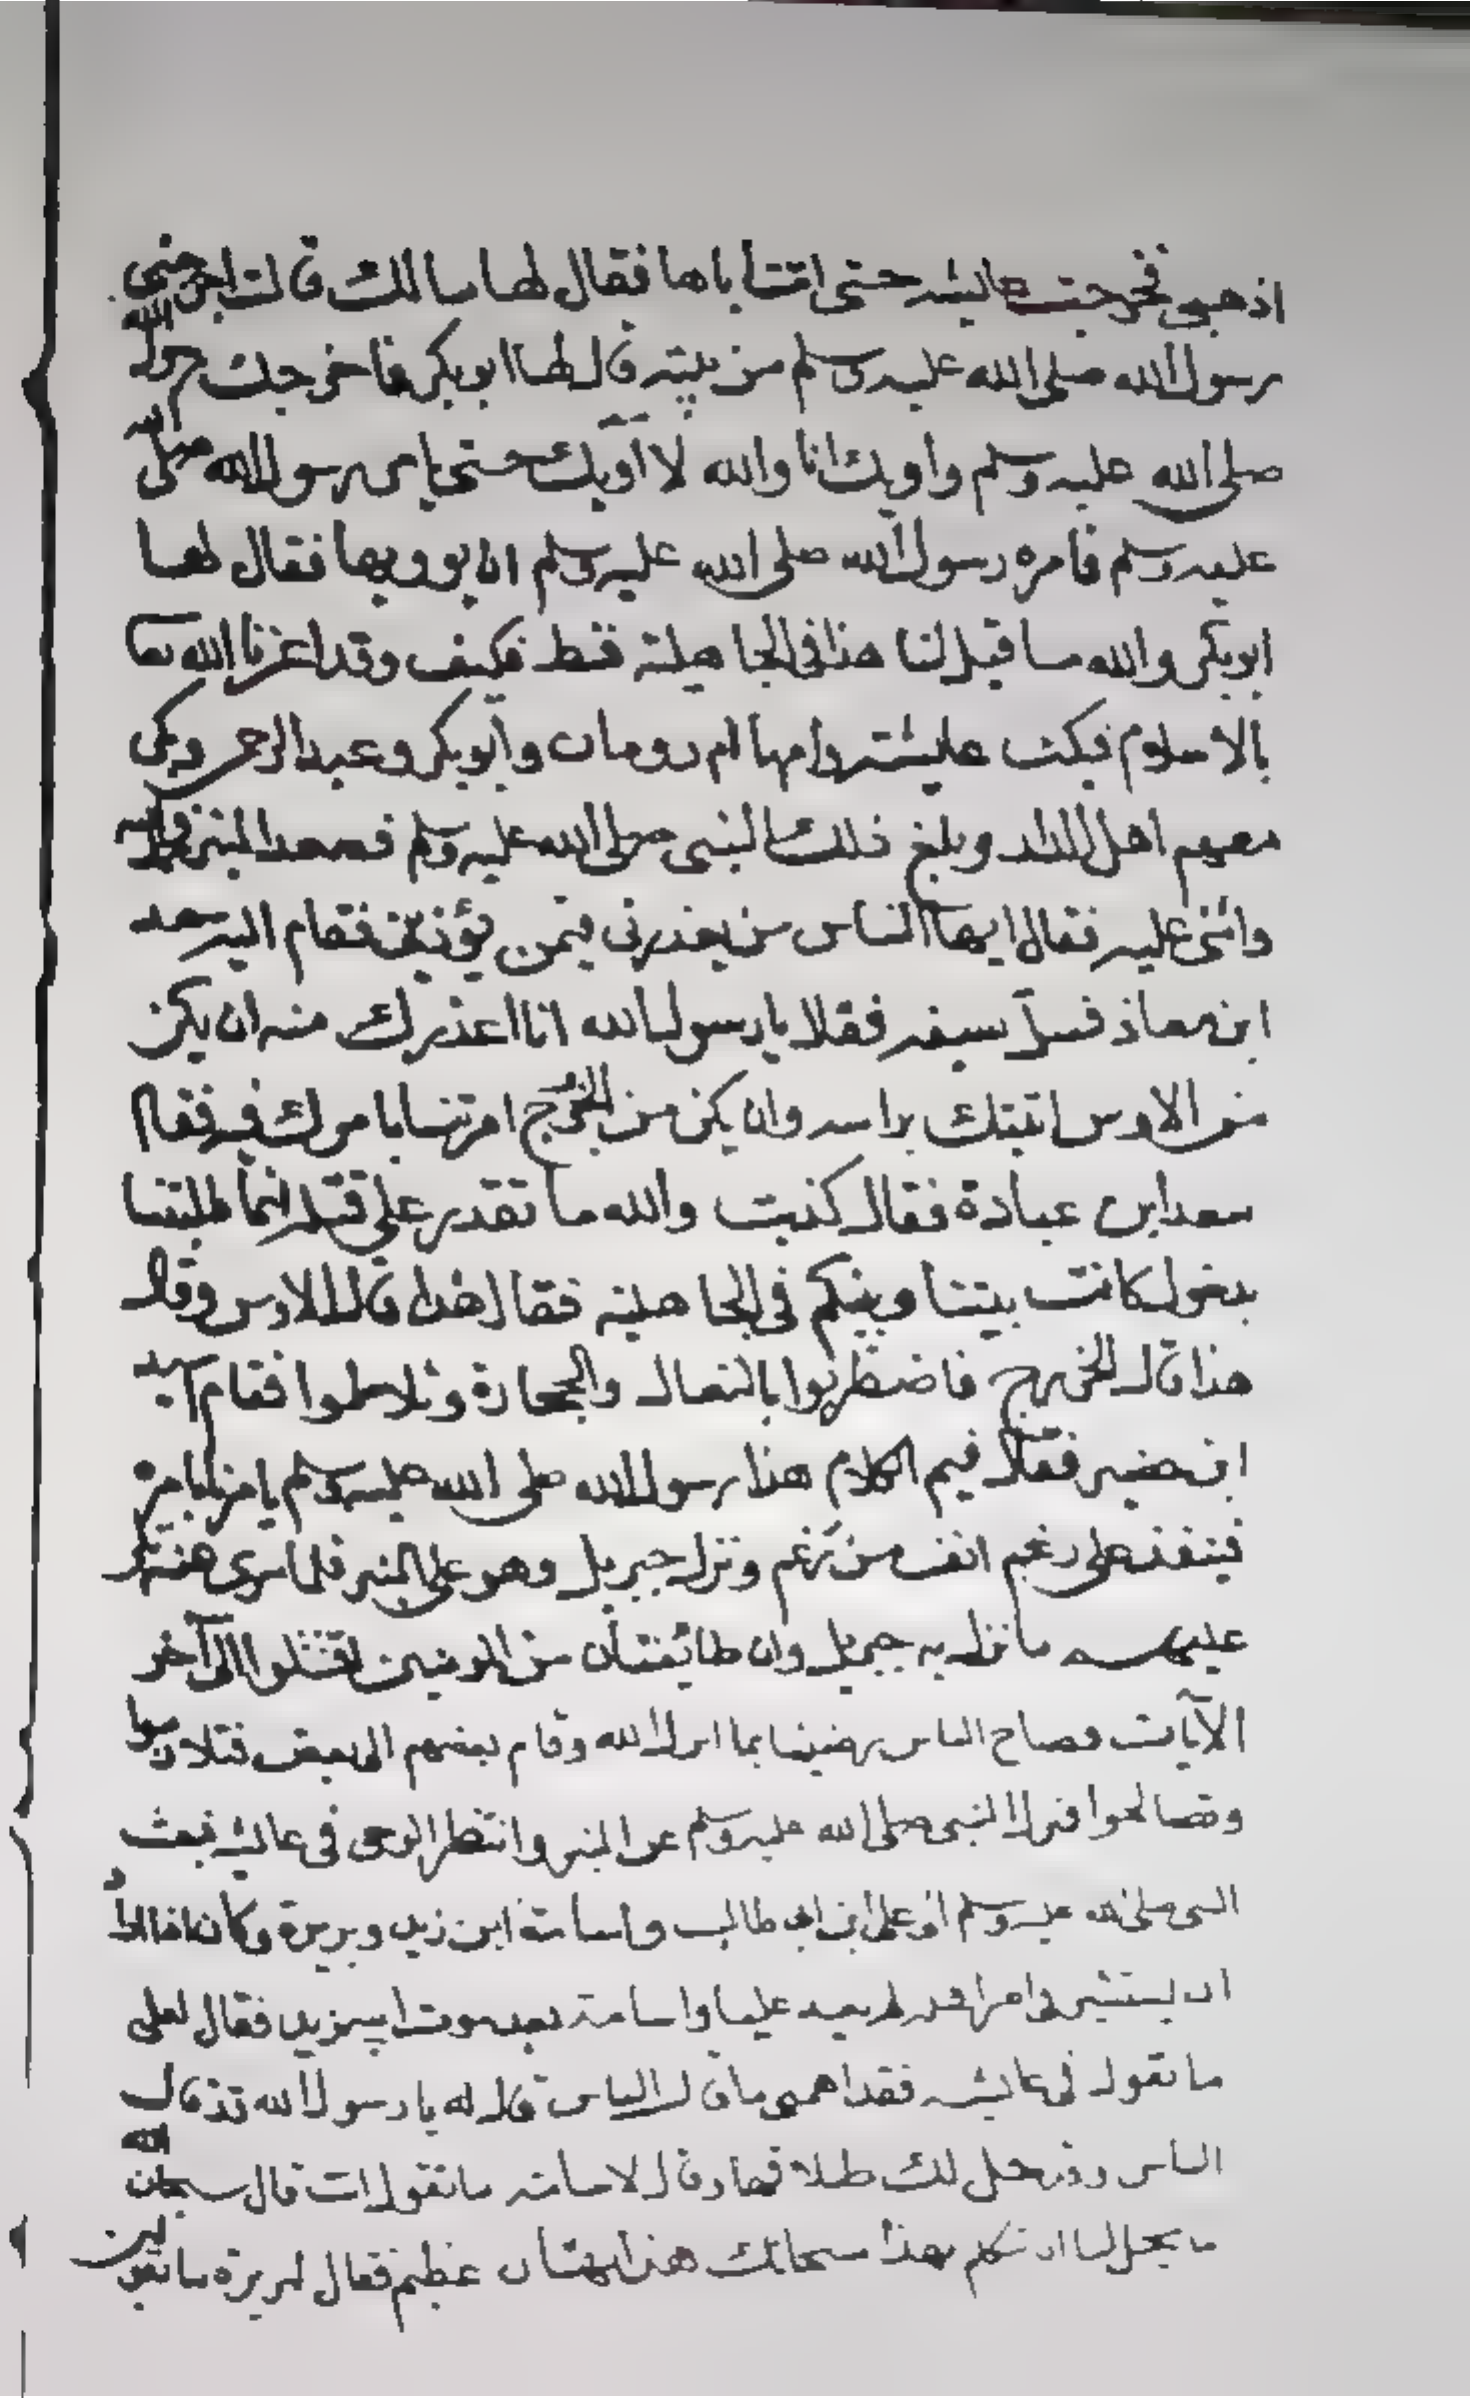 اذهبي فخرجت عايشه حتى اتت اباها فقال لها مالك قالت اخرجني
رسول الله صلى الله عليه وسلم من بيته قال لها ابو بكر فاخرجك رسول الله
صلى الله عليه وسلم واويك انا والله لا آويك حتى يامر رسول الله صلى الله
عليه وسلم فامره رسول الله صلى الله عليه وسلم ان يوويها فقال لها
ابو بكر والله ما قيل لنا هذا في الجاهلية قط فكيف وقد اعزنا الله تعا
بالاسلام فبكت عايشة وامها ام رومان وابو بكر وعبد الرحمن وبكى
معهم اهل الدار وبلغ ذلك النبي صلى الله عليه وسلم فصعد المنبر فحمد الله
واثنى عليه فقال ايها الناس من يعذرني فيمن يؤذيني فقام اليه سعد
ابن معاذ فسل سيفه فقال يا رسول الله انا اعذرك منه ان يكن
من الاوس اتيتك براسه وان يكن من الخزرج امرتنا بامرك فيه فقام
سعد ابن عبادة فقال كذبت والله ما تقدر على قتله انما طلبتنا
بدخول كانت بيننا وبينكم في الجاهلية فقال هذا قال الاوس وقال
هذا قال الخزرج فاضطربوا بالنعال والحجارة وتلاطموا فقام اسيد
ابن حضير فقال فيم الكلام هذا رسول الله صلى الله عليه وسلم يامرنا بامره
فينفذ على رغم انف من رغم ونزل جبريل وهو على المنبر فلما سرى عنه تلا
عليهم ما نزل به جبريل وان طائفتان من المومنين اقتتلوا الى آخر
الآيات فصاح الناس رضينا بما انزل الله وقام بعضهم الى بعض فتلازموا
وتصالحوا فنزل النبي صلى الله عليه وسلم عن المنبر وانتظر الوحى في عايشه فبعث
النبي صلى الله عليه وسلم الى على ابن ابي طالب واسامة ابن زيد وبريرة وكان اذا اراد
ان يستشير في امر اهله لم يعد عليا واسامة بعد موت ابيه زيد فقال لعلى
ما تقول في عايشه فقد اهمني ما قال الناس قال له يا رسول الله قد قال
الناس وقد حل لك طلاقها وقال لاسامة ما تقول انت قال سبحان الله
ما يحل لنا ان نتكلم بهذا سبحانك هذا بهتان عظيم فقال لبريرة ما تقولين